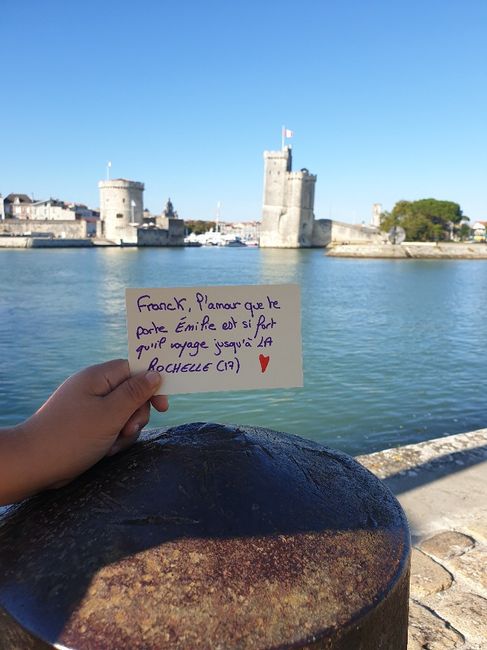 Franck, l'amour que te
porte Émilie est si fort
qu'il voyage jusqu'à LA
ROCHELLE (17)